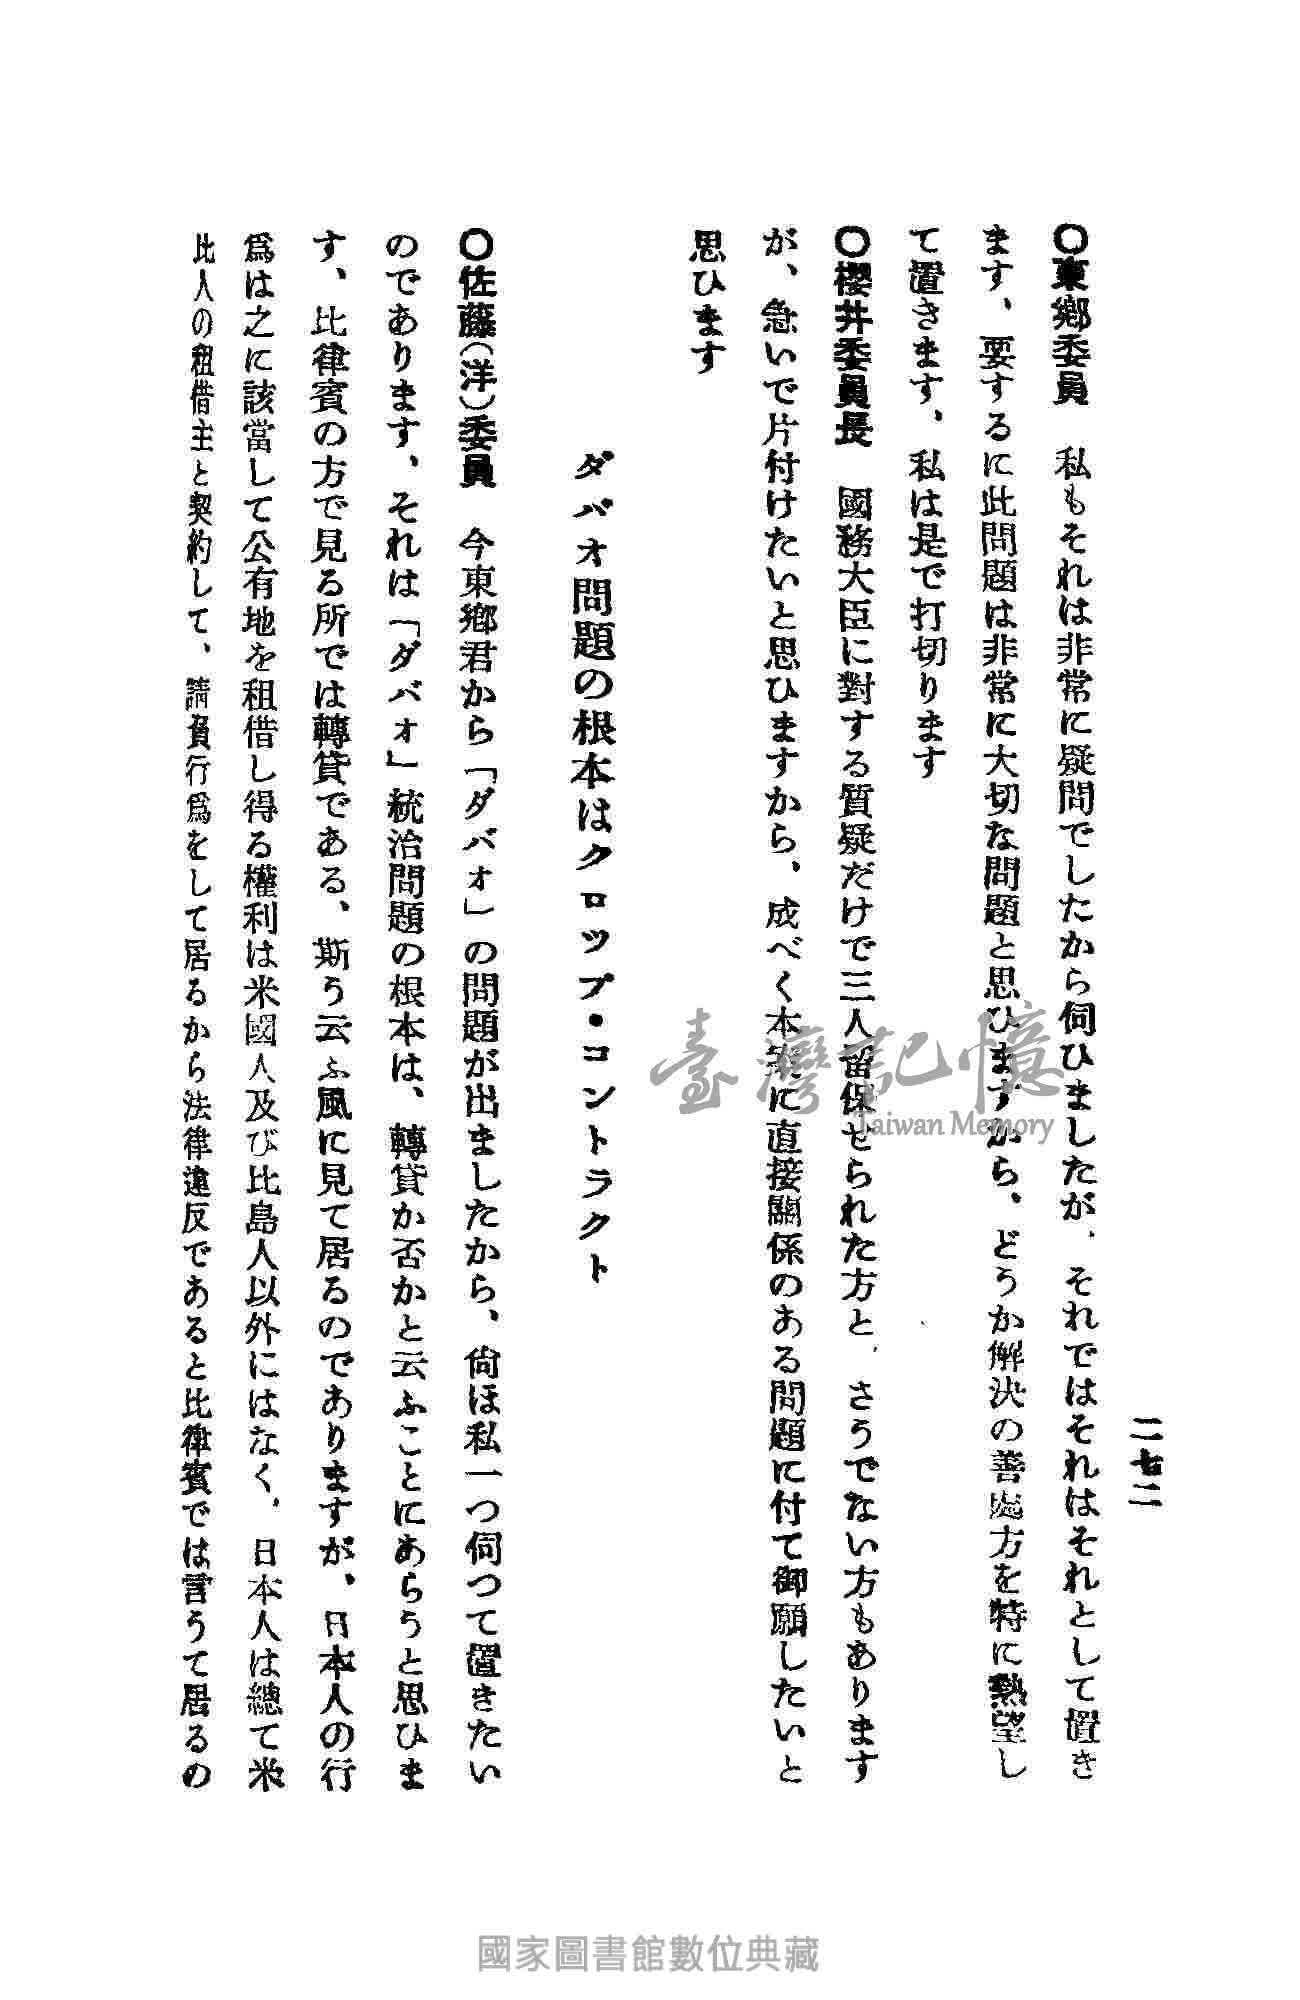 二七二
〇東鄕委員　私もそれは非常に疑問でしたから伺ひましたが、それではそれはそれとして置き
ます、要するに此問題は非常に大切な問題と思ひますから、どうか解決の善處方を特に熱望し
て置きます、私は是で打切ります
〇櫻井委員長　國務大臣に對する質疑だけで三人留保せられた方と、さうでない方もあります
が、急いで片付けたいと思ひますから、成べく本案に直接關係のある問題に付て御願したいと
思ひます
ダバオ問題の根本はクロップ・コントラクト
〇佐藤（洋）委員　今東鄕君から「ダバォ」の問題が出ましたから、尙ほ私一つ伺つて置きたい
のであります、それは「ダバォ」統治問題の根本は、轉貸か否かと云ふことにあらうと思ひま
す、比律賓の方で見る所では轉貸である、斯う云ふ風に見て居るのでありますが、日本人の行
爲は之に該當して公有地を租借し得る權利は米國人及び比島人以外にはなく、日本人は總て米
比人の租借主と契約して、請負行爲をして居るから法律違反であると比律賓では言うて居るの
臺灣記憶
Taiwan Memory
國家圖書館數位典藏